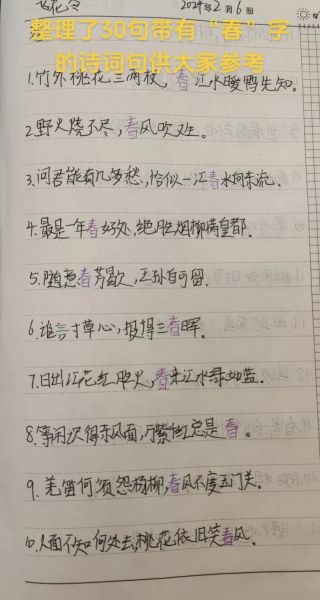 飞花令
2024年2月6日
整理了30句带有“春”字
的诗词句供大家参考
1.竹外桃花三两枝,春江水暖鸭先知。
2.野火烧不尽,春风吹又生。
3.问君能有几多愁,恰似一江春水向东流。
4.最是一年春好处,绝胜烟柳满皇都。
5.随意春芳歇,王孙自可留。
6.谁言寸草心,报得三春晖。
7.日出江花红胜火,春来江水绿如蓝。
8.等闲识得东风面,万紫千红总是春。
9.羌笛何须怨杨柳,春风不度玉门关。
10.人面不知何处去,桃花依旧笑春风。